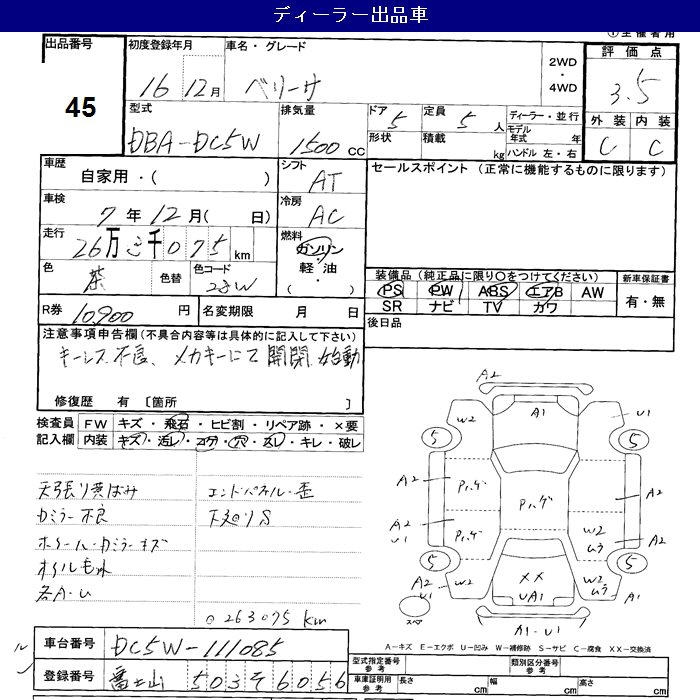 ディーラー出品車
①主催者用
出品番号
45
初度登録年月
16 12月
車名・グレード
ベリーサ
2WD
・
4WD
評価点
3.5
型式
DBA-DC5W
排気量
1500 cc
ドア 5
形状
定員 5 人
積載 kg
ディーラー・並行
モデル年式 年
ハンドル 左・右
外装 内装
C C
車歴
自家用・( )
シフト
AT
セールスポイント (正常に機能するものに限ります)
車検
7年12月( 日)
冷房
AC
走行
26万3千075km
燃料
ガソリン
軽・油
( ・ )
色
茶
色替
色コード
R券 10,900 円
名変期限 月 日
装備品(純正品に限り○をつけてください)
PS PW ABS エアB AW
SR ナビ TV カワ
新車保証書
有・無
後日品
注意事項申告欄(不具合内容等は具体的に記入して下さい)
キーレス不良、メカキーにて開閉、始動
修復歴 有 〔箇所 〕
検査員記入欄
FW キズ・飛石・ヒビ割・リペア跡・×要
内装 キズ・汚レ・コゲ・穴・スレ・キレ・破レ
天張り黄ばみ
カミラー不良
ホイール・カミラーキズ
オイルもれ
各A・U
エンドパネル・歪
下廻りS
○263075km
A2
W2 A1 U1
5 5
A2 Pハゲ Pハゲ A2
A2 U1 Pハゲ W2 ムラ A2
5 5
A2 U1 W2 XX UA1 W2 ムラ A2 U1
スペア
A1・U1
A-キズ E-エクボ U-凹み W-補修跡 S-サビ C-腐食 XX-交換済
車台番号 DC5W-111085
登録番号 富士山 503 そ 6056
型式指定番号 参考
類別区分番号 参考
車庫証明用 参考
長さ cm 幅 cm 高さ cm